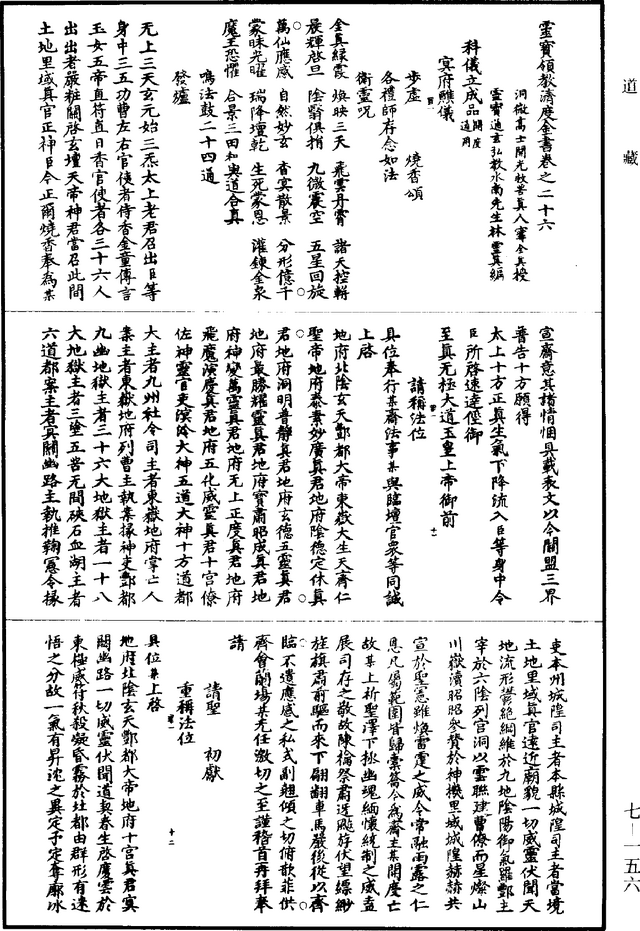 道藏
七—一五六
靈寶領教濟度金書卷之二十六
洞微高士開光救苦真人寗全真授
靈寶通玄弘教水南先生林靈真編
科儀立成品 開度通用
冥府醮儀
步虛 燒香頌
各禮師存念如法
衛靈呪
全真緣霞 煥映三天 飛雲丹霄 諸天控軿
晨輝啓旦 陰翳俱捐 九微震空 五星回旋
萬仙應感 自然妙玄 香寘散景 分形億千
蒙昧光曜 瑞降壇乾 生死蒙恩 灌鍊金泉
魔王恐懼 合景三田 和與道合真
鳴法鼓二十四通
發爐
无上三天玄元始三炁太上老君召出臣等
身中三五功曹左右官使者侍香金童傳言
玉女五帝直符直日香官使者各三十六人
出出者嚴粧關啓玄壇天帝神君當召此間
土地里域真官正神臣今正爾燒香奉為某
宣齋意其諸情悃具載表文以今關盟三界
普告十方願得
太上十方正真生氣下降流入臣等身中令
臣所啓速達徑御
至真无極大道玉皇上帝御前
請稱法位
具位奉行某齋法事某與臨壇官衆等同誠
上啓
地府北陰玄天酆都大帝東嶽大生天齊仁
聖帝地府泰素妙廣真君地府陰德定休真
君地府洞明普靜真君地府玄德五靈真君
地府最勝耀靈真君地府寶肅昭成真君地
府神變萬靈真君地府无上正度真君地府
飛魔演慶真君地府五化威靈真君十宮僚
佐神靈官吏溟泠大神五道大神十方道都
大主者九州社令司主者東嶽地府掌亡人
案主者東嶽地府列曹主執案掾神吏酆都
九幽地獄主者三十六大地獄主者一十八
大地獄主者三塗五苦无間硤石血湖主者
六道都案主者冥關幽路主執推鞫冤令掾
吏本州城隍司主者本縣城隍司主者當境
土地里域真官遠近廟貌一切威靈伏聞天
地流形鬱絕綱維於九地陰陽御氣羅酆主
宰於六陰列宮洞以雲聯建曹僚而星燦山
川嶽瀆昭昭參贊於神機里域城隍赫赫共
宣於聖憲雖煥雷霆之威令常融雨露之仁
恩凡屬範圍皆歸橐籥今為齋主某開度亡
故某上祈聖澤下拯幽魂緬懷統制之威盍
展司存之敬故陳掄祭蔚迓飈斿伏望縹緲
旌旗肅前驅而來下翩翻車馬嚴後從以齊
臨不遺應感之私式副翹傾之切俯歆菲供
齊會蘭場某无任激切之至謹稽首再拜奉
請
請聖 初獻
重稱法位
具位某上啓
地府北陰玄天酆都大帝地府十宮真君冥
關幽路一切威靈伏聞道契春生啓慶雲於
東極威符秋殺凝昏霧於北都由群形有迷
悟之分故一氣有昇沈之異定予定奪廓冰